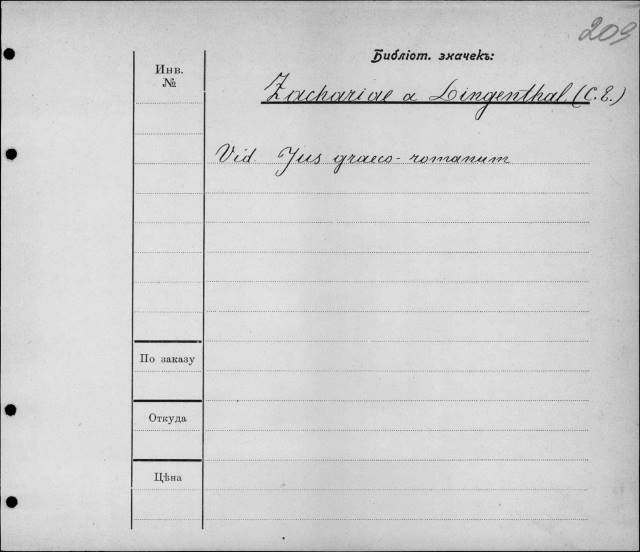 209
Библіот. значекъ:
Инв.
№
Zachariae a Lingenthal (C. E.)
Vid. Jus graeco-romanum
По заказу
Откуда
Цѣна